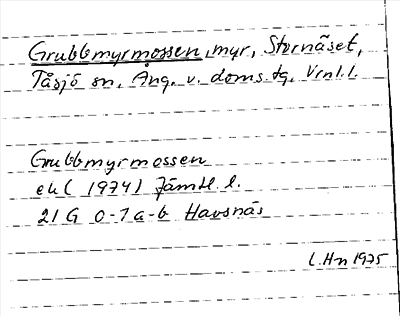 Grubbmyrmossen, myr, Stornäset,
Tåsjö sn, Ång. v. doms. tg, Vrnl. l.
Grubbmyrmossen
ek (1974) Jämtl. l.
21 G 0-1 a-b Havsnäs
L. Hn 1975